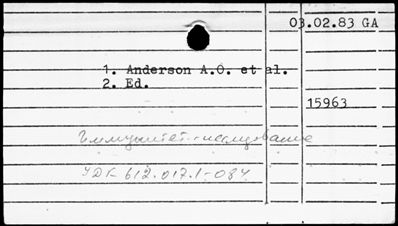 03.02.83 GA
1. Anderson A.O. et al.
2. Ed.
15963
Иммунитет - исследование
УДК 612.017.1-084